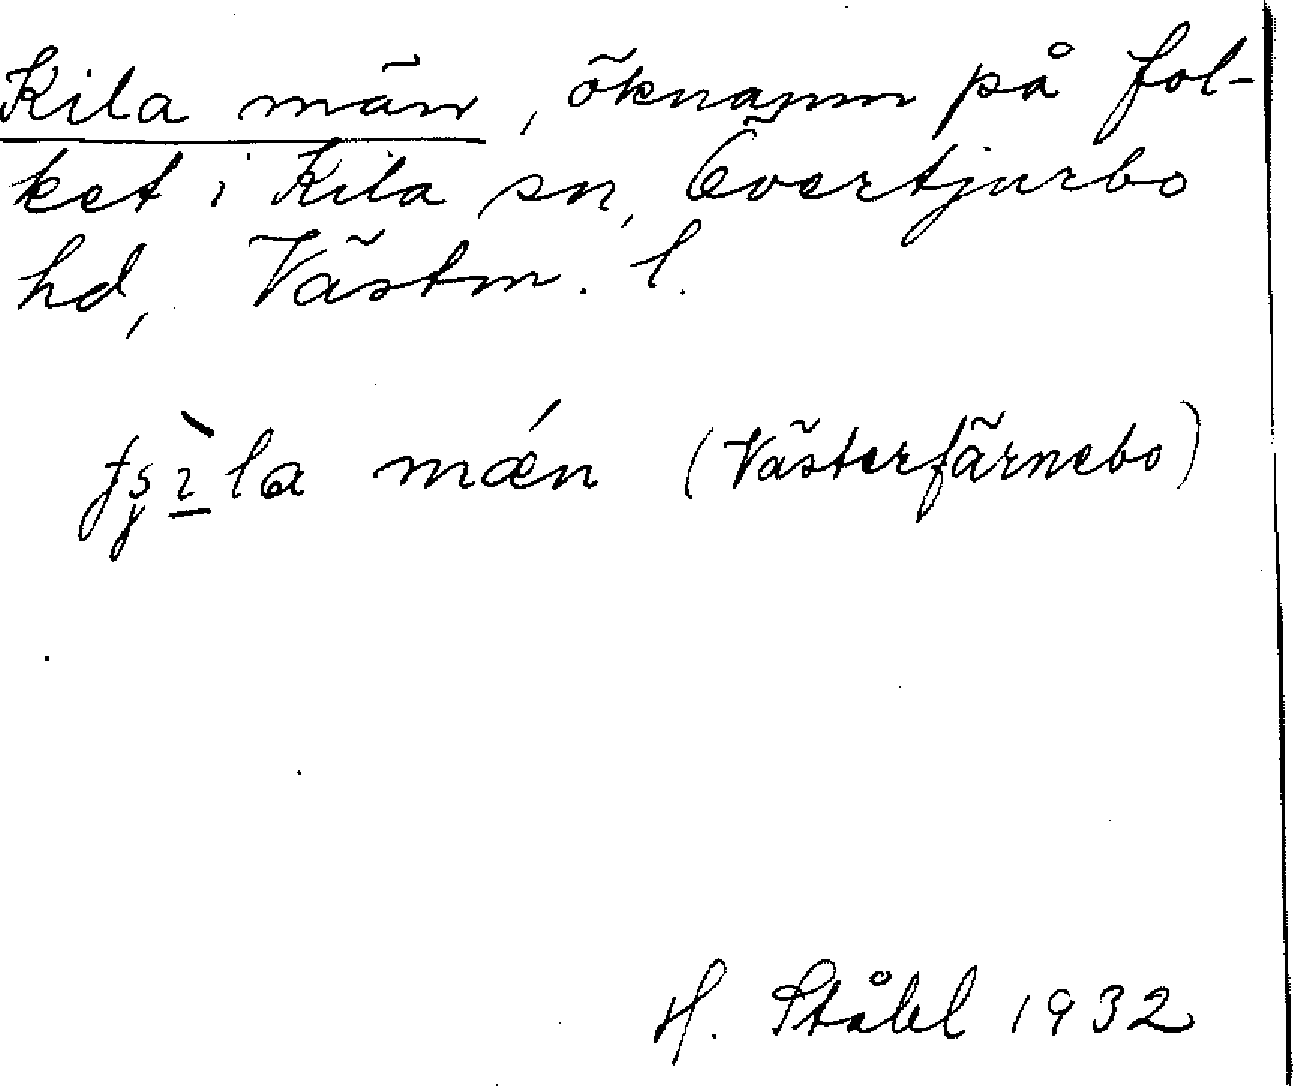 Kila män, öknamn på fol-
ket i Kila sn, Övertjurbo
hd, Västm. l.
la mǽn (Västerfärnebo)
H. Ståhl 1932